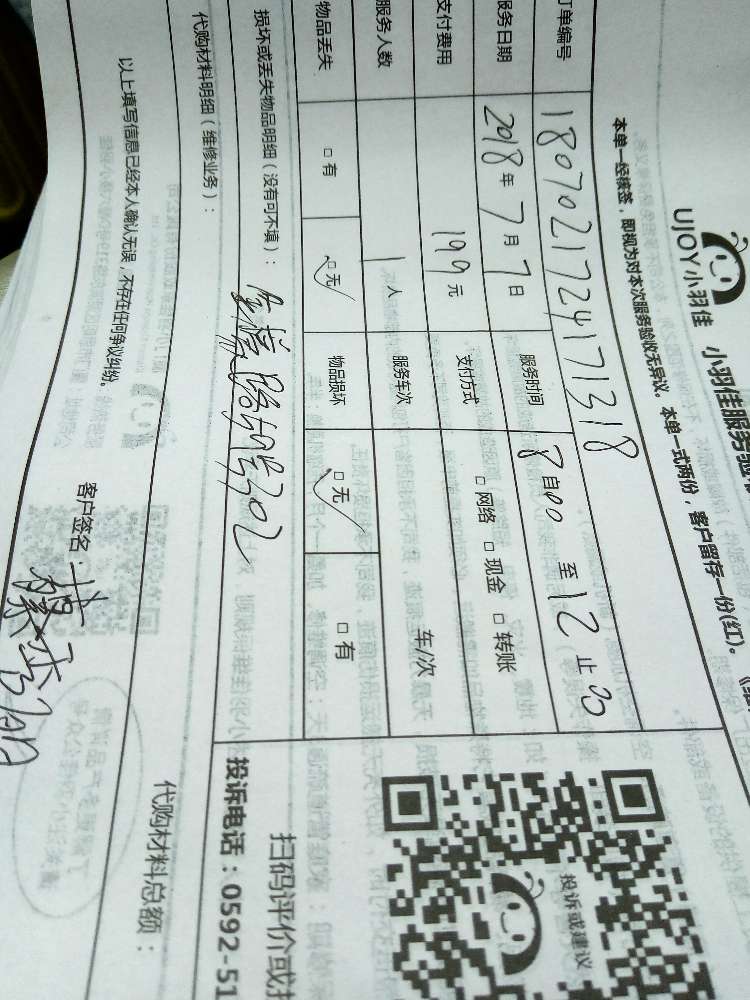 UJOY小羽佳 小羽佳服务验收
本单一经核签，即视为对本次服务验收无异议。本单一式两份，客户留存一份(红)。
订单编号 1807021724171318
服务日期 2018年7月7日 服务时间 8自00至12止00
支付费用 199元 支付方式 □网络 □现金 □转账
服务人数 1人 服务车次 车/次
物品丢失 □有 □无✓ 物品损坏 □无✓ □有
损坏或丢失物品明细（没有可不填）：
代购材料明细（维修业务）：
代购材料总额：
以上填写信息已经本人确认无误，不存在任何争议纠纷。
客户签名：
投诉或建议
扫码评价或投
投诉电话：0592-51